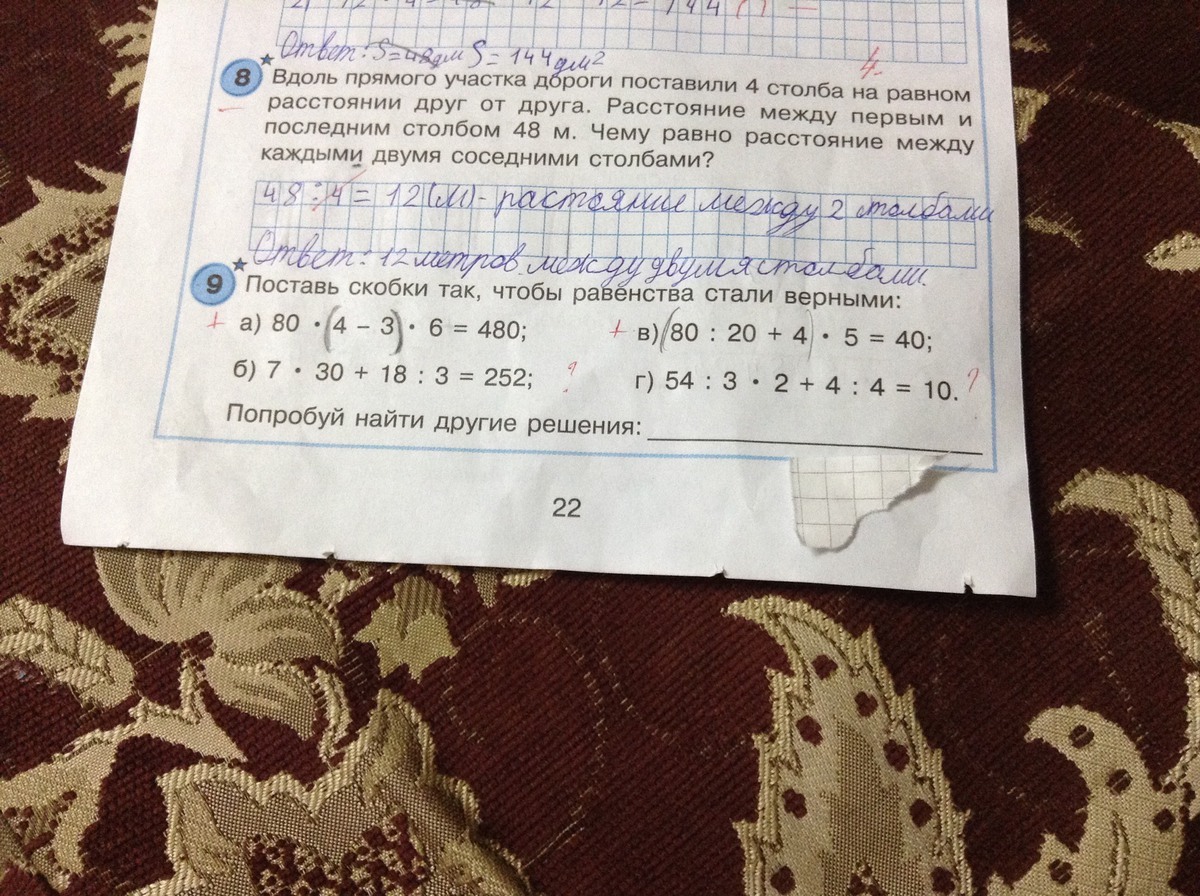 2) 12 · 4 = 48 12 · 12 = 144 ( ) —
Ответ: S=48дм S= 144дм²
4.
8 Вдоль прямого участка дороги поставили 4 столба на равном
расстоянии друг от друга. Расстояние между первым и
последним столбом 48 м. Чему равно расстояние между
каждыми двумя соседними столбами?
48 : 4 = 12(м)- растояние между 2 столбами
Ответ: 12 метров между двумя столбами.
9 Поставь скобки так, чтобы равенства стали верными:
+ а) 80 · (4 – 3) · 6 = 480; + в) (80 : 20 + 4) · 5 = 40;
б) 7 · 30 + 18 : 3 = 252; ? г) 54 : 3 · 2 + 4 : 4 = 10. ?
Попробуй найти другие решения:
22